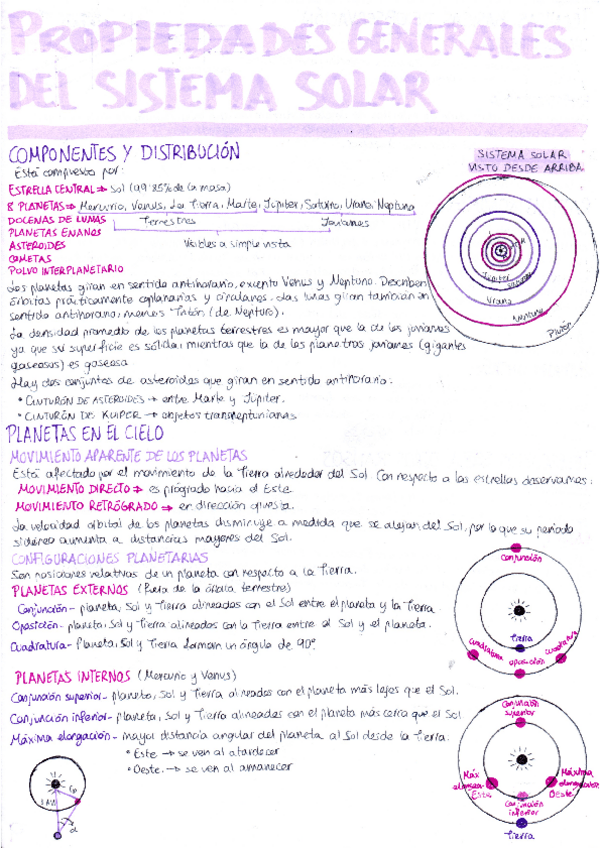 PROPIEDADES GENERALES
DEL SISTEMA SOLAR
COMPONENTES Y DISTRIBUCIÓN
Está compuesto por:
ESTRELLA CENTRAL → Sol (99'85% de la masa)
8 PLANETAS → Mercurio, Venus, La Tierra, Marte, Júpiter, Saturno, Urano, Neptuno
DOCENAS DE LUNAS Terrestres Jovianos
PLANETAS ENANOS
ASTEROIDES Visibles a simple vista
COMETAS
POLVO INTERPLANETARIO
SISTEMA SOLAR
VISTO DESDE ARRIBA
Júpiter
Saturno
Urano
Neptuno
Plutón
Los planetas giran en sentido antihorario, excepto Venus y Neptuno. Describen
órbitas prácticamente coplanarias y circulares. Las lunas giran también en
sentido antihorario, menos Tritón (de Neptuno).
La densidad promedio de los planetas terrestres es mayor que la de los jovianos
ya que su superficie es sólida, mientras que la de los planetas jovianos (gigantes
gaseosos) es gaseosa
Hay dos conjuntos de asteroides que giran en sentido antihorario:
• CINTURÓN DE ASTEROIDES → entre Marte y Júpiter.
• CINTURÓN DE KUIPER → objetos transneptunianos
PLANETAS EN EL CIELO
MOVIMIENTO APARENTE DE LOS PLANETAS
Está afectado por el movimiento de la Tierra alrededor del Sol. Con respecto a las estrellas observamos:
MOVIMIENTO DIRECTO → es prógrado hacia el Este.
MOVIMIENTO RETRÓGRADO → en dirección opuesta.
La velocidad orbital de los planetas disminuye a medida que se alejan del Sol, por lo que su periodo
sidéreo aumenta a distancias mayores del Sol.
CONFIGURACIONES PLANETARIAS
Son posiciones relativas de un planeta con respecto a la Tierra.
PLANETAS EXTERNOS (Fuera de la órbita terrestre)
Conjunción- planeta, Sol y Tierra alineados con el Sol entre el planeta y la Tierra.
Oposición- planeta, Sol y Tierra alineados con la Tierra entre el Sol y el planeta.
Cuadratura- Planeta, Sol y Tierra forman un ángulo de 90°.
Conjunción
Tierra
cuadratura
oposición
cuadratura
PLANETAS INTERNOS (Mercurio y Venus)
Conjunción superior- planeta, Sol y Tierra alineados con el planeta más lejos que el Sol.
Conjunción inferior- planeta, Sol y Tierra alineados con el planeta más cerca que el Sol
Máxima elongación- mayor distancia angular del planeta al Sol desde la Tierra:
• Este → se ven al atardecer
• Oeste → se ven al amanecer
Conjunción
superior
Máx
elongación
Este
Máxima
elongación
Oeste
Conjunción
inferior
Tierra
1 AU
α